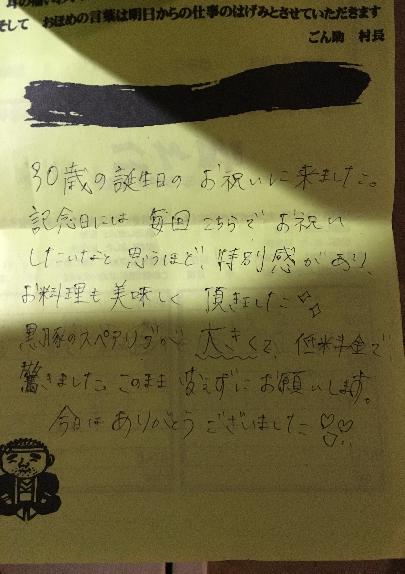 そして おほめの言葉は明日からの仕事のはげみとさせていただきます
ごん助 村長
30歳の誕生日のお祝いに来ました。
記念日には毎回こちらでお祝い
したいなと思うほど、特別感があり、
お料理も美味しく頂きました☆☆
黒豚のスペアリブが大きくて、低料金で
驚きました。このまま変えずにお願いします。
今日はありがとうございました♡♡♡